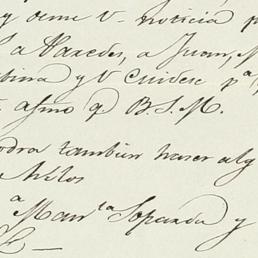 y deme V. noticia p
a Paredes, a Juan, M
bina y V Cuidese pa
afmo q B.S.M.
odra tambien haser alg
hilos
a Manla Soparda y